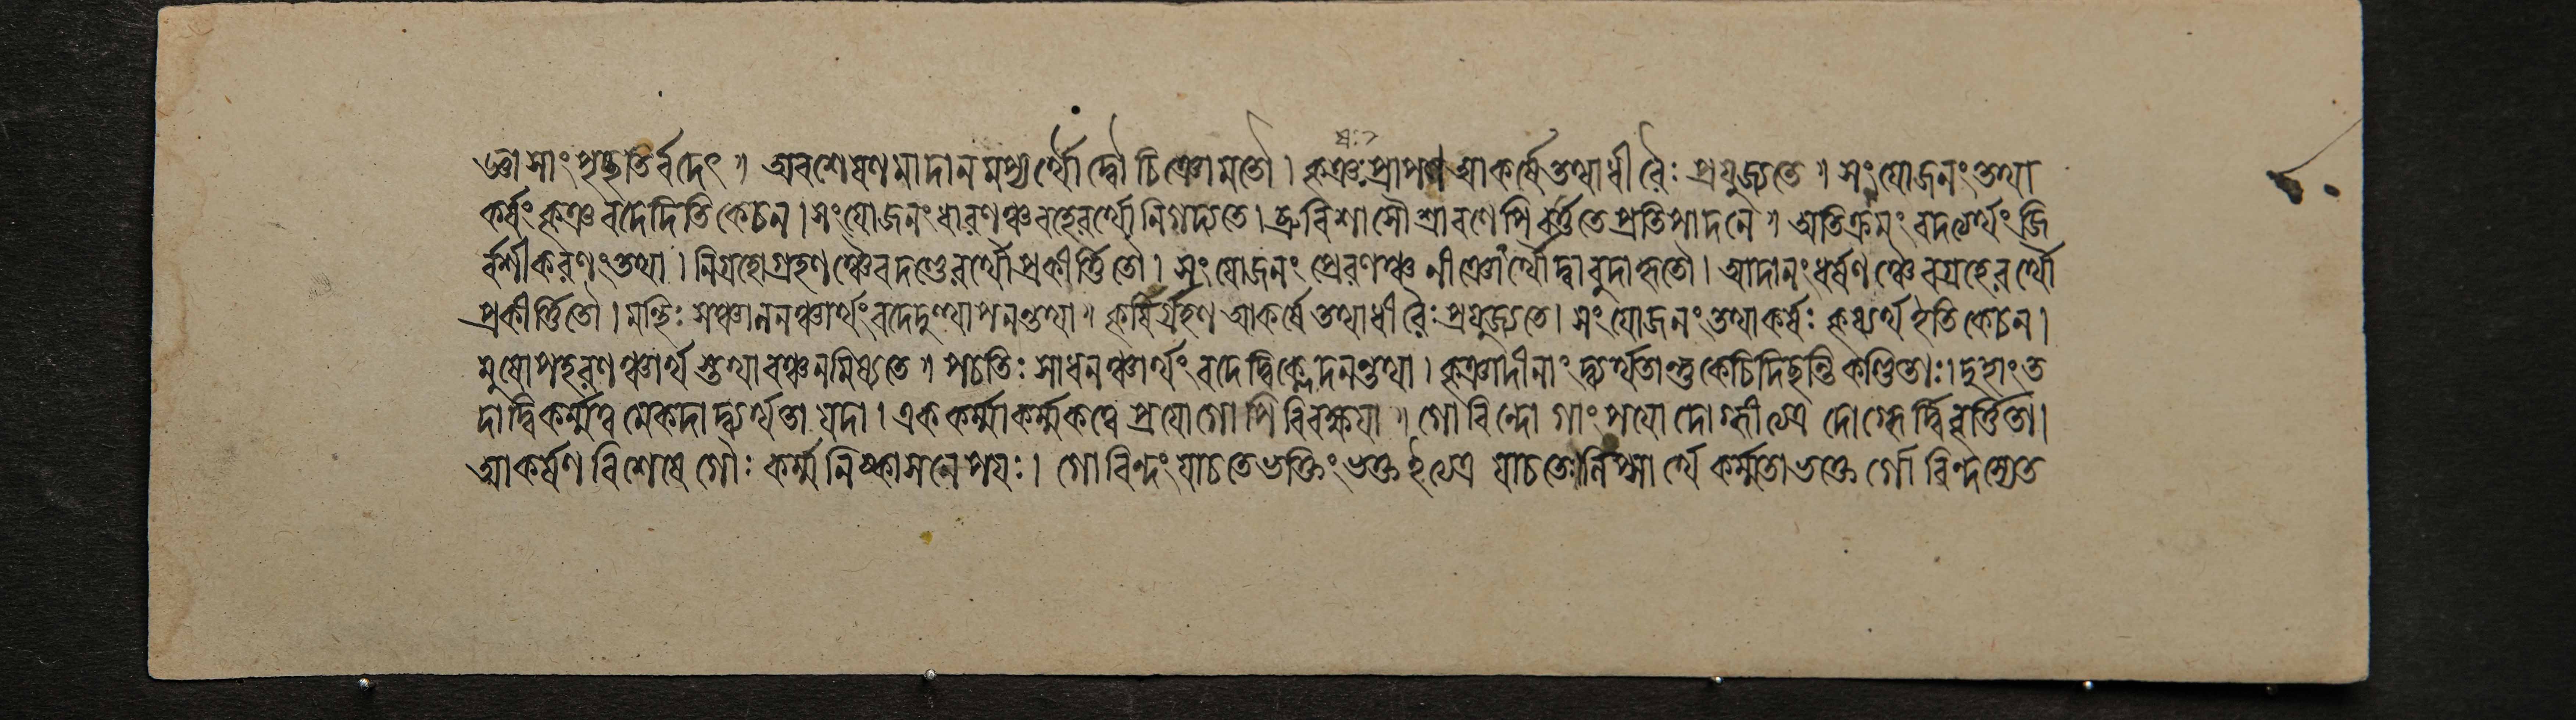 জ্ঞীপ্সাং পৃচ্ছতির্বদেৎ॥ অবশেষণমাদানমপ্যর্থৌ দ্বৌ চিঞো মতৌ। হৃঞঃ প্রাপণ আকর্ষে তথা ধীরৈঃ প্রযুজ্যতে॥ সংযোজনং তথা
কর্ষং হৃঞ বদেদিতি কেচন। সংযোজনং ধারণঞ্চ বহেরর্থৌ নিগদ্যতে। ব্রুবিশাসৌ শ্রাবণেপি বর্ত্ততে প্রতিপাদনে॥ অতিক্রমং বদত্যর্থং জি
র্বশীকরণং তথা। নিগ্রহো গ্রহণঞ্চৈব দণ্ডেরর্থৌ প্রকীর্ত্তিতৌ। সংযোজনং প্রেরণঞ্চ নীঞোর্থৌ দ্বাবুদাহৃতৌ। আদানং ধর্ষণঞ্চৈব গ্রহেরর্থৌ
প্রকীর্ত্তিতৌ। মন্থিঃ সঞ্চালনঞ্চার্থং বদেদুত্থাপনন্তথা॥ কৃষির্গ্রহণ আকর্ষে তথা ধীরৈঃ প্রযুজ্যতে। সংযোজনং তথাকর্ষঃ কৃষ্যর্থ ইতি কেচন।
মুষোপহরণঞ্চার্থ স্তথা বঞ্চনমিষ্যতে॥ পচতিঃ সাধনঞ্চার্থং বদেদ্বিক্লেদনন্তথা। হৃঞাদীনাং দ্ব্যর্থতান্তু কেচিদিছন্তি পণ্ডিতাঃ। দুহাং ত
দা দ্বিকর্ম্মত্ব মেকদা দ্ব্যর্থতা যদা। এককর্ম্মাকর্ম্মকত্বে প্রযোগোপি বিবক্ষযা॥ গোবিন্দো গাং পযো দোগ্ধীত্যেত্র দোগ্ধের্দ্বিবৃর্ত্তিতা।
আকর্ষণবিশেষে গৌঃ কর্ম্ম নিষ্কাসনে পযঃ। গোবিন্দং যাচতে ভক্তিং ভক্ত ইত্যেত্র যাচতের্লিপ্সার্থে কর্ম্মতা ভক্তে র্গোবিন্দস্যেত